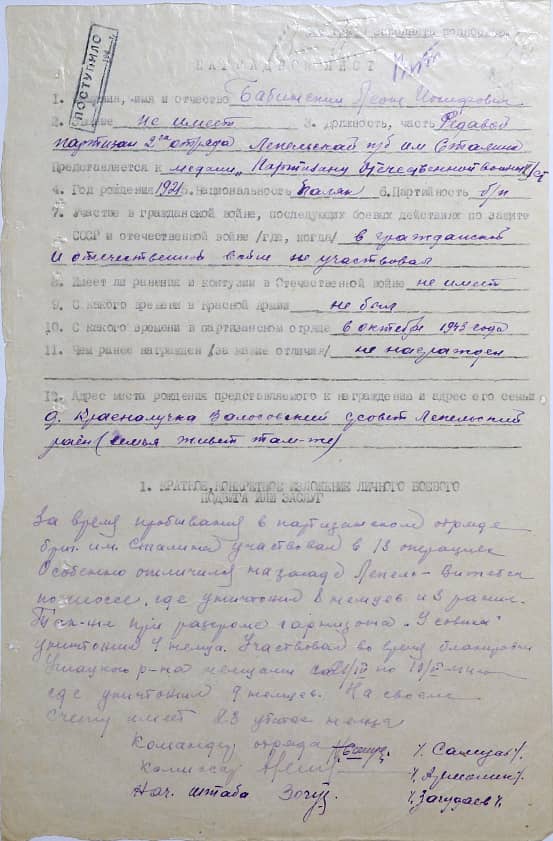 ПОСТУПИЛО
НАГРАДНОЙ ЛИСТ
1. Фамилия, имя и отчество Бабицкий Леон Иосифович
2. Звание не имеет 3. Должность, часть Рядовой
партизан 2го отряда Лепельской п/б им Сталина
Представляется к медали "Партизану Отечественной войны" II ст
4. Год рождения 1921 5. Национальность Поляк 6. Партийность б/п
7. Участие в гражданской войне, последующих боевых действиях по защите
СССР и отечественной войне /где, когда/ в гражданской
и отечественной войне не участвовал
8. Имеет ли ранения и контузии в Отечественной войне не имеет
9. С какого времени в Красной Армии не был
10. С какого времени в партизанском отряде 6 октября 1943 года
11. Чем ранее награжден /за какие отличия/ не награжден
12. Адрес места рождения представляемого к награждению и адрес его семьи
д. Краснолучка Волосовский с/совет Лепельский
район (семья живет там-же)
1. КРАТКОЕ, КОНКРЕТНОЕ ИЗЛОЖЕНИЕ ЛИЧНОГО БОЕВОГО
ПОДВИГА ИЛИ ЗАСЛУГ
За время пребывания в партизанском отряде
бриг. им. Сталина участвовал в 13 операциях
Особенно отличился на засаде Лепель-Витебск
по шоссе, где уничтожил 8 немцев и 3 расин.
Так-же при разгроме гарнизона
уничтожил 4 немца. Участвовал во время блокировки
Ушацкого р-на немцами
где уничтожил 9 немцев. На своем
счету имеет 23 убитое немца
Командир отряда
Комиссар
Нач. штаба